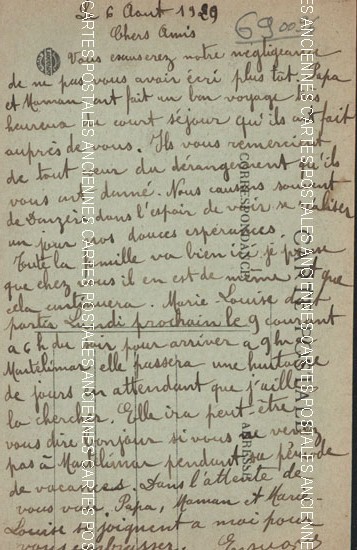 Le 6 Aout 1929
69
Chers Amis
Vous excuserez notre négligeance
de ne pas vous avoir écri plus tôt. Papa
et Maman ont fait un bon voyage très
heureux du court séjour qu'ils ont fait
auprès de vous. Ils vous remercient
de tout coeur du dérangement qu'ils
vous ont donné. Nous causons souvent
de dans l'espoir de voir se réaliser
un jour nos douces espérances.
Toute la famille va bien ici, je pense
que chez vous il en est de même et que
cela continuera. Marie Louise doit
partir Lundi prochain le 9 courant
a 6 h du soir pour arriver a 9 h a
Montélimar elle passera une huitaine
de jours en attendant que j'aille
la chercher. Elle ira peut-être
vous dire bonjour si vous ne venez
pas à Montélimar pendant sa période
de vacances. Dans l'attente de
vous voir, Papa, Maman et Marie
Louise se joignent a moi pour
vous embrasser.
CORRESPONDANCE
ADRESSE
CARTES POSTALES ANCIENNES CARTES POSTALES ANCIENNES CARTES POSTALES ANCIENNES